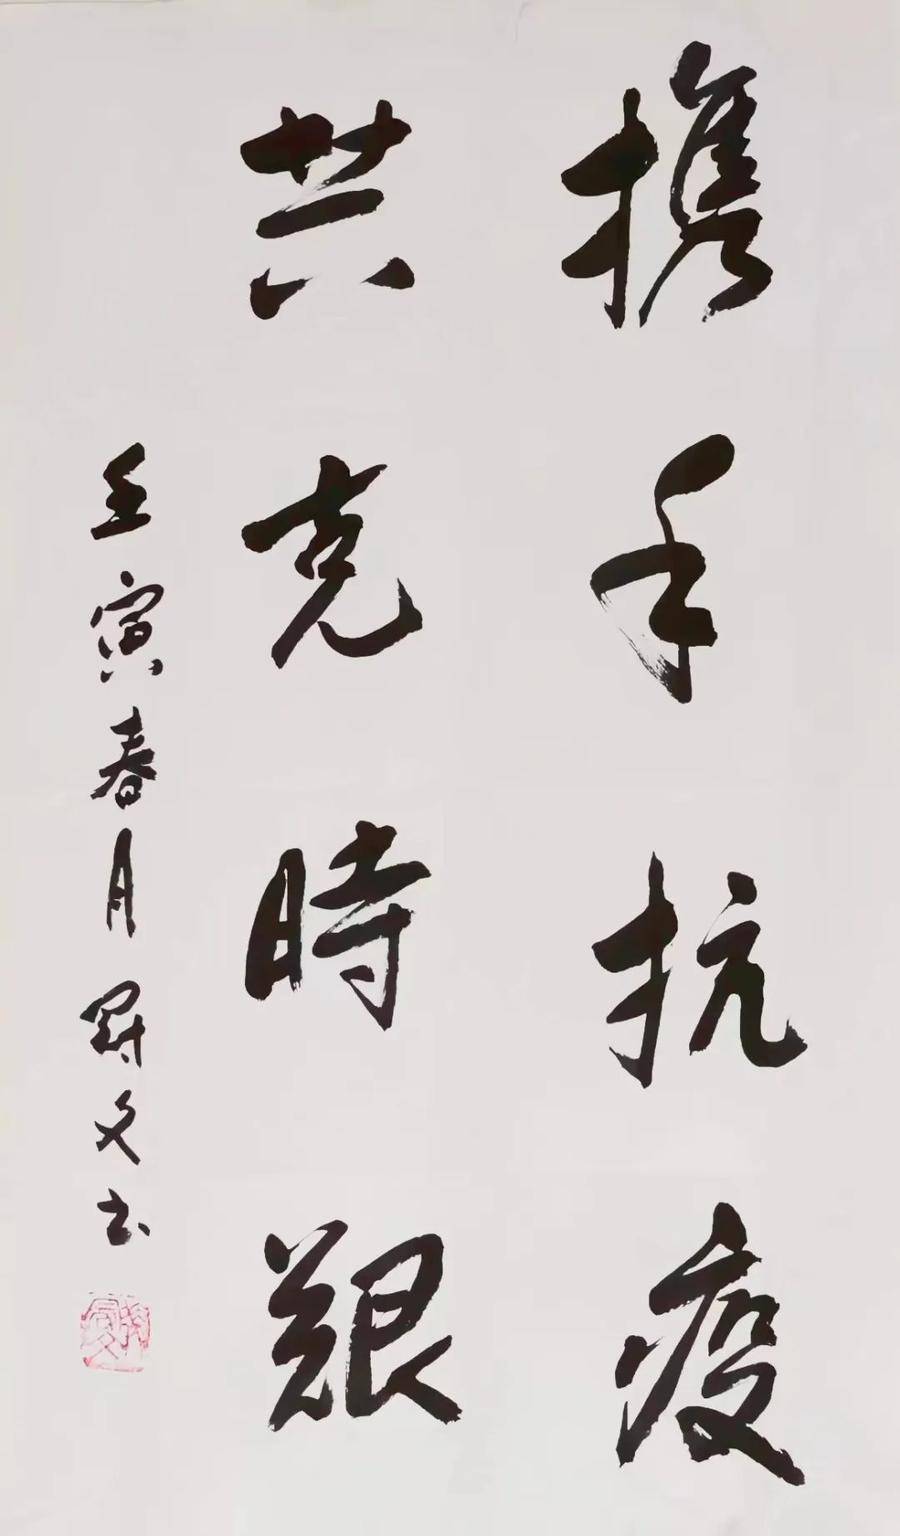 携手抗疫
共克時艱
壬寅春月尉文书